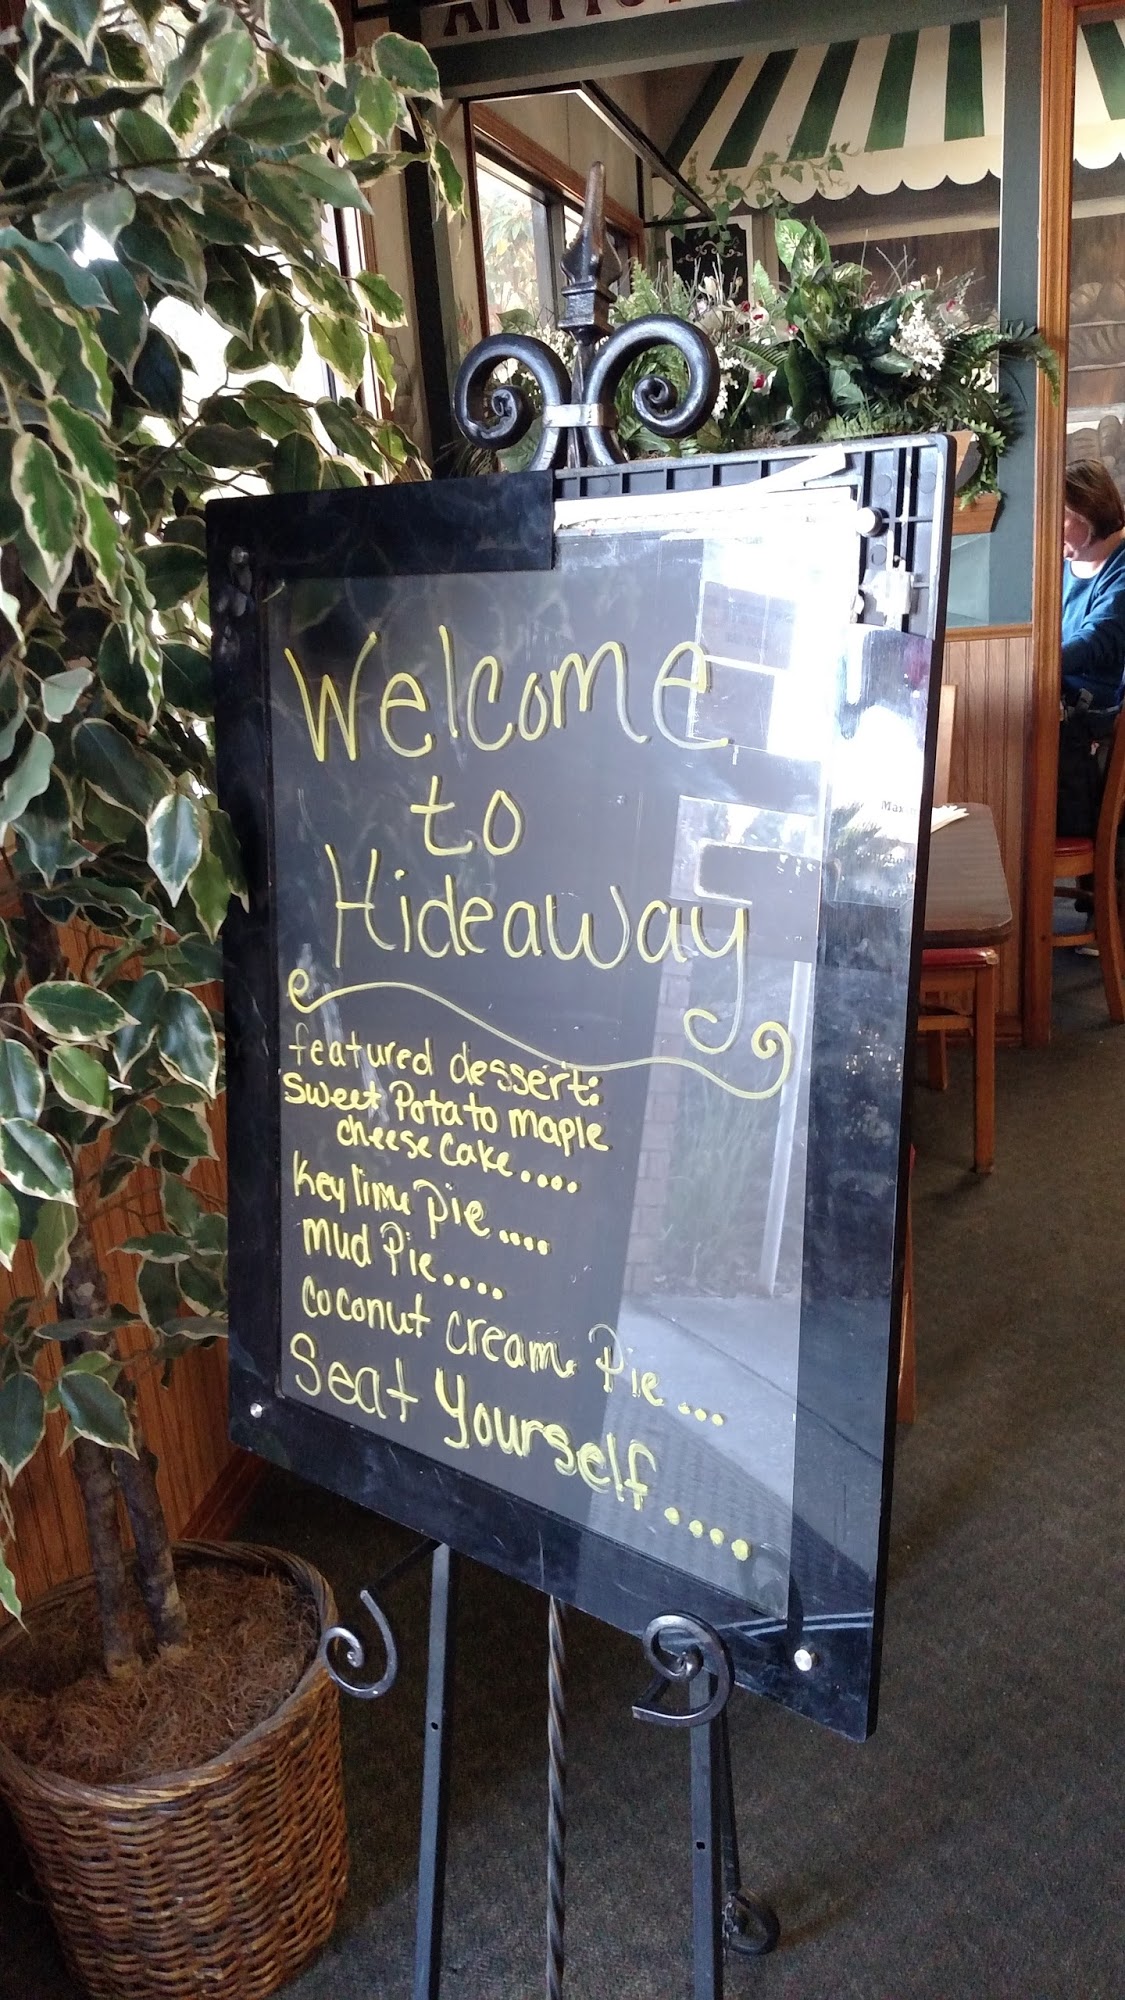 Welcome
to
Hideaway
featured dessert:
Sweet Potato maple
cheese cake....
Key lime pie....
mud Pie....
coconut cream Pie...
Seat Yourself....